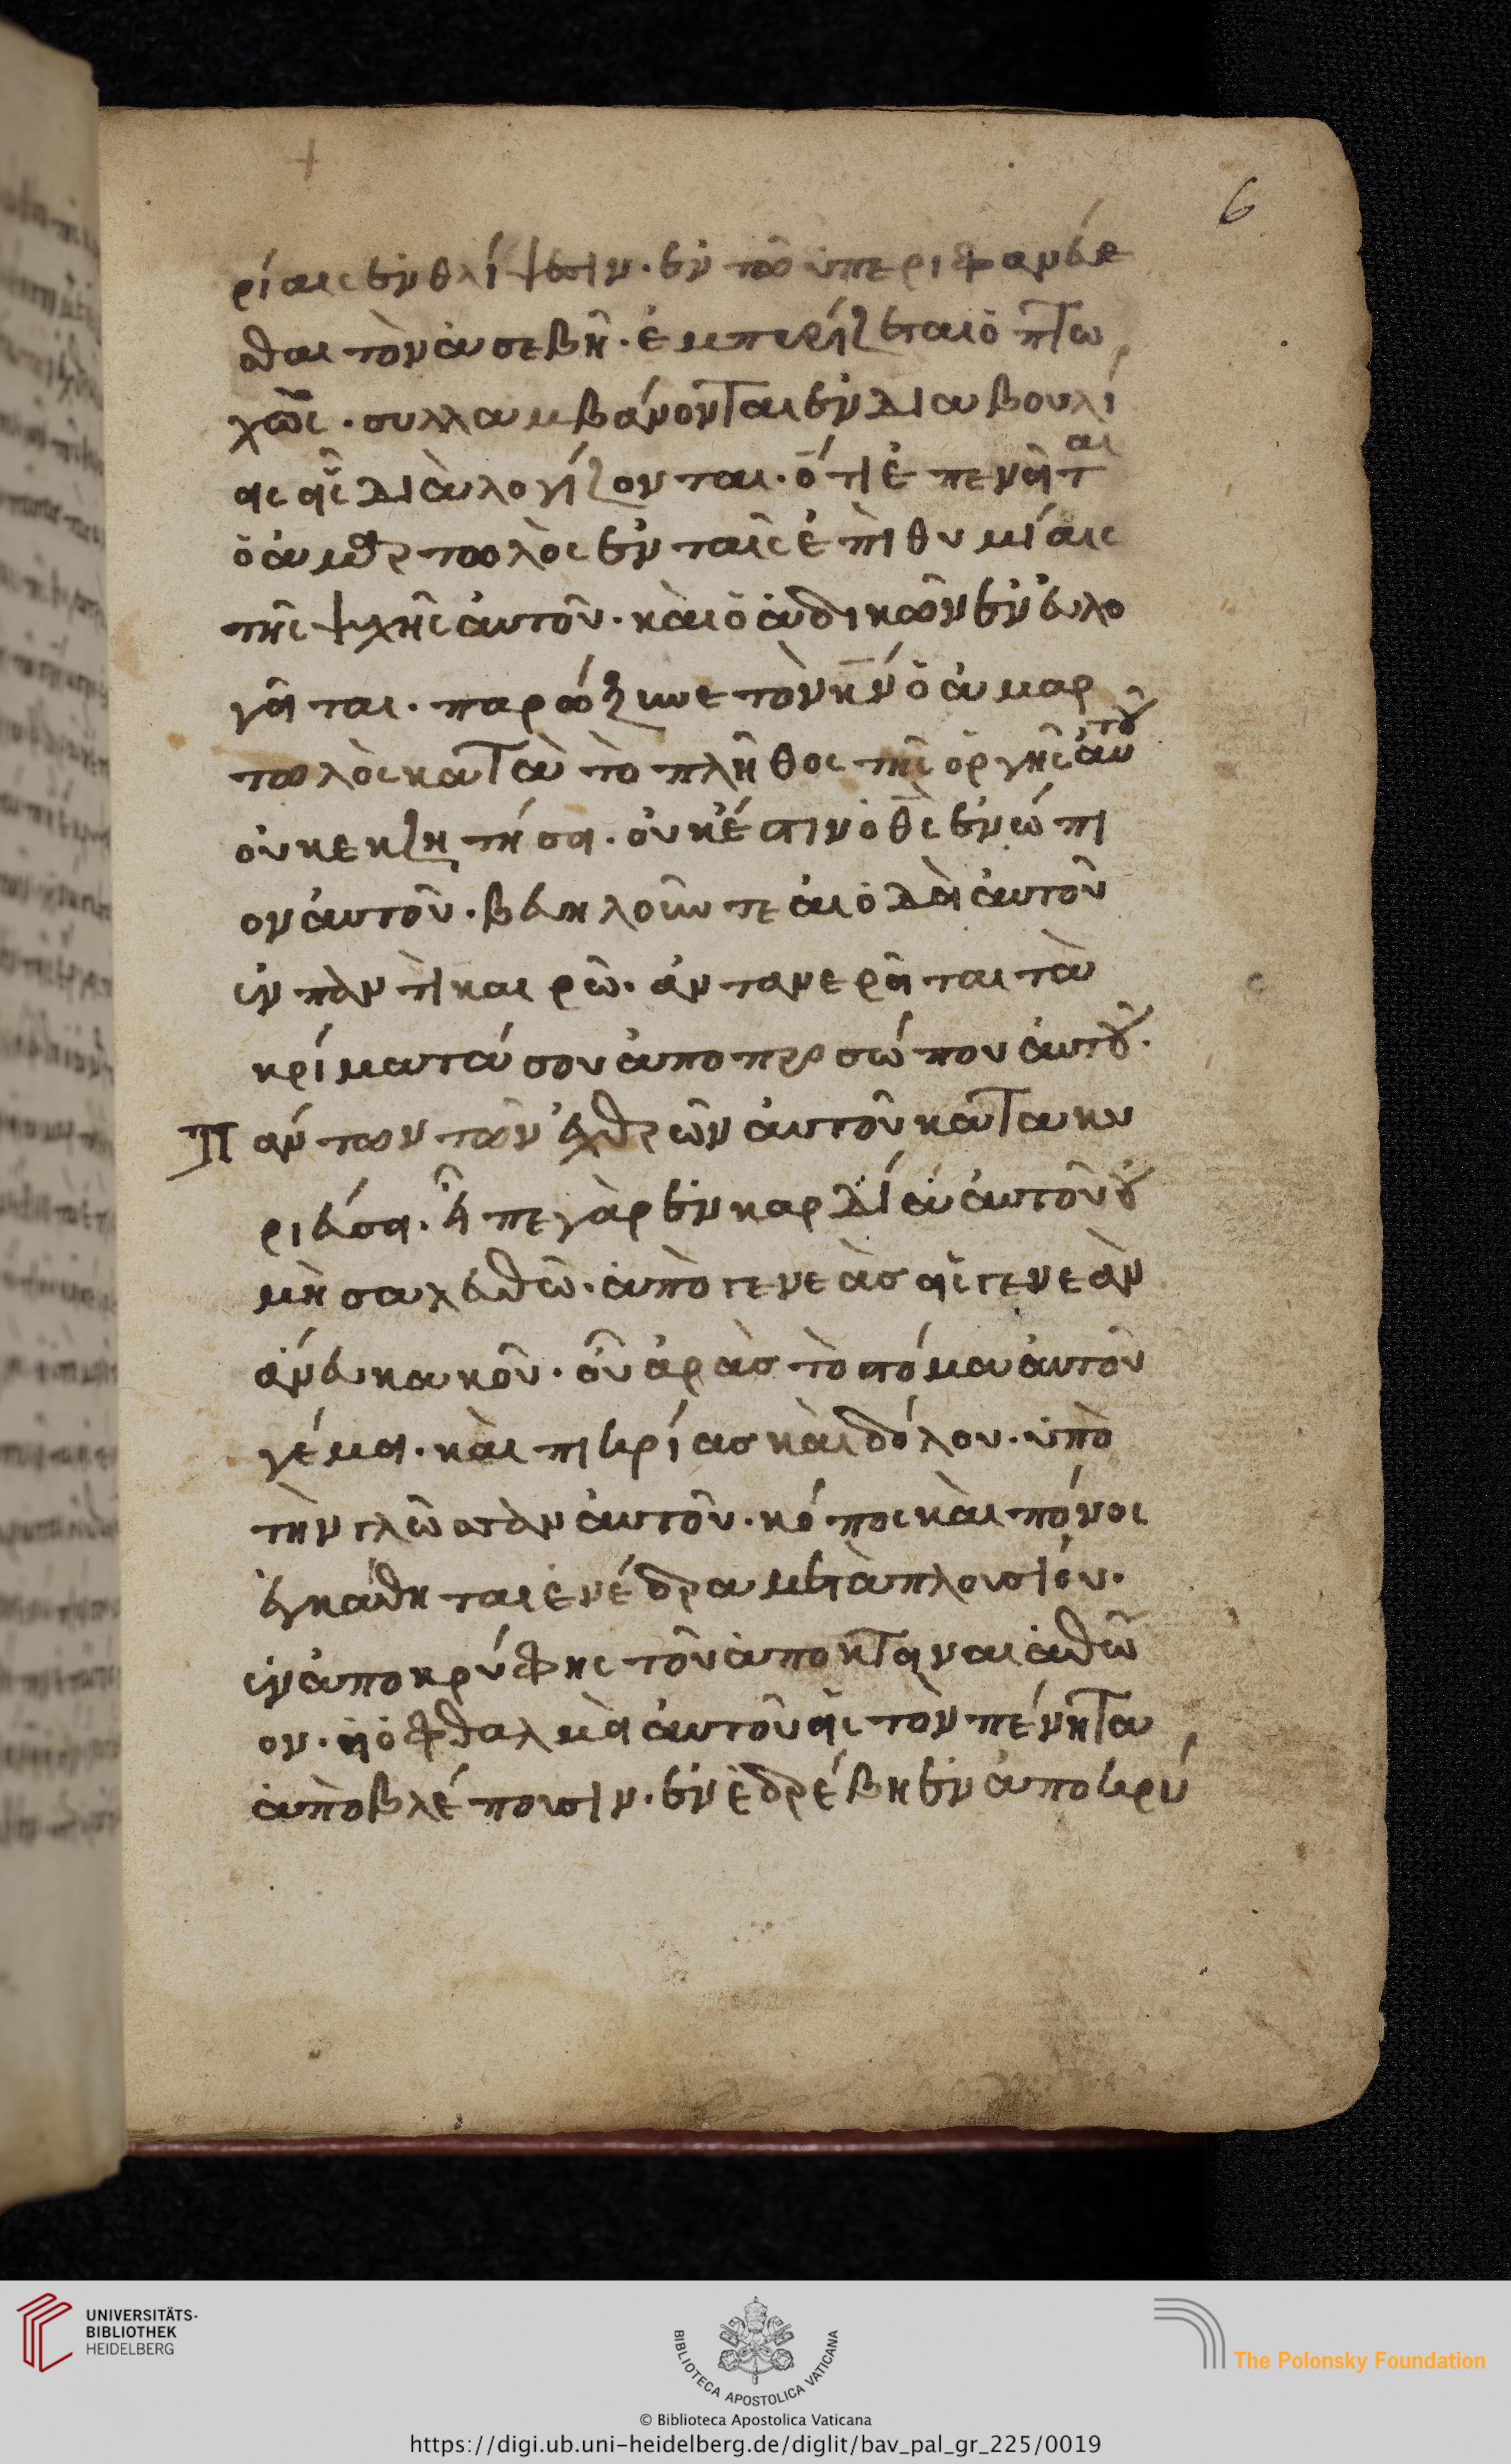 6
ρίαις ἐν θλίψεσιν · ἐν τῶ ὑπεριφανέβε
σθαι τὸν ἀσεβῆ · ἐμπυρίζεται ὁ πτω
χῶς · συλλαμβάνονται ἐν διαβουλί
εις εἷς διὰλογίζονται · ὅτι ἐπενεῖται
ὁ ἁμαρτωλὸς ἐν ταῖς ἐπὶθυμίαις
τῆς ψχῆς ἀυτοῦ · κὰι ὁ ἀδικῶν ἐνευλο
γεῖται · παρώξυνε τὸν κ̅ν̅ ὁ ἁμαρ
τωλὸς κατὰ τὸ πλῆθος τῆς ὀργῆς ἀυτοῦ
οὐκ εκζητήσει · οὐκ ἔστιν ὁ θ̅ς̅ ἐνώπι
ον ἀυτοῦ · βεβηλοῦντε ἁι ὁδὲι ἀυτοῦ
ἐν πὰντὶ καιρῶ · ἀντανερεῖται τὰ
κρίματά σου ἀπο προσώπου ἀυτοῦ ·
Πάντων τῶν ἐχθρῶν ἀυτοῦ κατακυ
ριεύσει · εἶπε γὰρ ἐν καρδία ἀυτοῦ οὐ
μὴ σαλευθῶ · ἀπὸ γενεὰσ εἰς γενεὰν
ἄνευ κακοῦ · οὗ ἀρὰσ τὸ στόμα ἀυτοῦ
γέμει · κὰι πικρίασ κὰι δόλου · ὑπὸ
τὴν γλῶσσὰν ἀυτοῦ · κόπος κὰι πόνος
ἐγκάθηται ἐνέδρα μετὰ πλουσίον ·
ἐν ἀποκρύφης τοῦ ἀποκτειναι ἀθῶ
ον · ἡ ὀφθαλμὲι ἀυτοῦ εἰς τὸν πένητα
ἀπὸβλέπουσιν · ἐνὲδρέβη ἐν ἀποκρύ
UNIVERSITÄTS-
BIBLIOTHEK
HEIDELBERG
BIBLIOTECA APOSTOLICA VATICANA
The Polonsky Foundation
© Biblioteca Apostolica Vaticana
https://digi.ub.uni-heidelberg.de/diglit/bav_pal_gr_225/0019